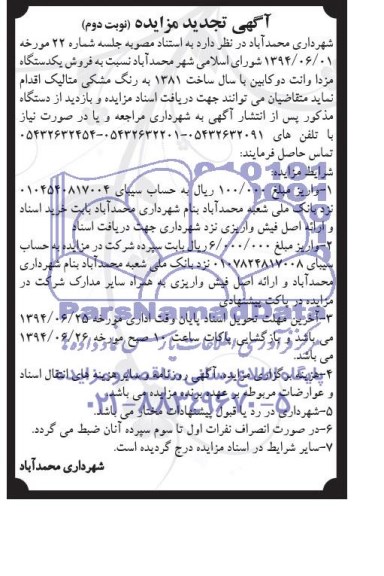 آگهی تجدید مزایده (نوبت دوم)
شهرداری محمدآباد در نظر دارد به استناد مصوبه جلسه شماره ۲۲ مورخه
۱۳۹۴/۰۶/۰۱ شورای اسلامی شهر محمدآباد نسبت به فروش یکدستگاه
مزدا وانت دوکابین با سال ساخت ۱۳۸۱ به رنگ مشکی متالیک اقدام
نماید متقاضیان می توانند جهت دریافت اسناد مزایده و بازدید از دستگاه
مذکور پس از انتشار آگهی به شهرداری مراجعه و یا در صورت نیاز
با تلفن های ۰۵۴۳۲۶۳۲۰۹۱-۰۵۴۳۲۶۳۲۲۰۱-۰۵۴۳۲۶۳۲۴۵۴
تماس حاصل فرمایند:
شرایط مزایده:
۱-واریز مبلغ ۱۰۰/۰۰۰ ریال به حساب سیبای ۰۱۰۴۵۴۰۸۱۷۰۰۴
نزد بانک ملی شعبه محمدآباد بنام شهرداری محمدآباد بابت خرید اسناد
و ارائه اصل فیش واریزی نزد شهرداری جهت دریافت اسناد
۲-واریز مبلغ ۶/۰۰۰/۰۰۰ ریال بابت سپرده شرکت در مزایده به حساب
سیبای ۰۱۰۷۸۲۴۸۱۷۰۰۸ نزد بانک ملی شعبه محمدآباد بنام شهرداری
محمدآباد و ارائه اصل فیش واریزی به همراه سایر مدارک شرکت در
مزایده در پاکت پیشنهادی
۳-آخرین مهلت تحویل اسناد پایان وقت اداری مورخه ۱۳۹۴/۰۶/۲۵
می باشد و بازگشایی پاکات ساعت ۱۰ صبح مورخه ۱۳۹۴/۰۶/۲۶
می باشد.
۴-هزینه برگزاری مزایده، آگهی روزنامه و سایر هزینه های انتقال اسناد
و عوارضات مربوطه بر عهده برنده مزایده می باشد.
۵-شهرداری در رد یا قبول پیشنهادات مختار می باشد.
۶-در صورت انصراف نفرات اول تا سوم سپرده آنان ضبط می گردد.
۷-سایر شرایط در اسناد مزایده درج گردیده است.
شهرداری محمدآباد
ParsNamadData
۰۲۱-۸۸۳۴۹۶۷۰-۵